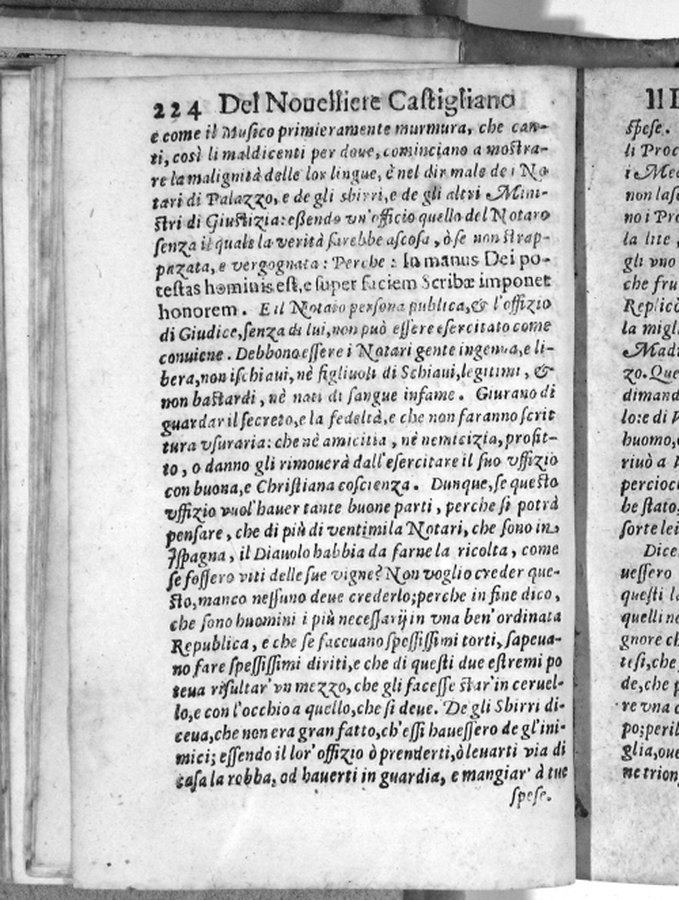 224 Del Nouelliere Castigliano
e come il Musico primieramente murmura, che can-
ti, così li maldicenti per doue, cominciano a mostra-
re la malignità delle lor lingue, è nel dir male de i No
tari di Palazzo, e de gli sbirri, e de gli altri Mini-
stri di Giustizia: eßendo vn'officio quello del Notaro
senza il quale la verità sarebbe ascosa, ò se non strap-
pazata, e vergognata: Perche: In manus Dei po-
testas hominis est, e super faciem Scribæ imponet
honorem. E il Notaro persona publica, & l'offizio
di Giudice, senza di lui, non può essere esercitato come
conuiene. Debbono essere i Notari gente ingenua, e li-
bera, non ischiaui, nè figliuoli di Schiaui, legitimi, &
non bastardi, nè nati di sangue infame. Giurano di
guardar il secreto, e la fedeltà, e che non faranno scrit
tura vsuraria: che nè amicitia, nè nemicizia, profit-
to, o danno gli rimouerà dall'esercitare il suo vffizio
con buona, e Christiana coscienza. Dunque, se questo
vffizio vuol'hauer tante buone parti, perche si potrà
pensare, che di più di ventimila Notari, che sono in
Ispagna, il Diauolo habbia da farne la ricolta, come
se fossero viti delle sue vigne? Non voglio creder que-
sto, manco nessuno deue crederlo; perche in fine dico,
che sono huomini i più necessarij in vna ben'ordinata
Republica, e che se faceuano spessissimi torti, sapeua-
no fare spessissimi diriti, e che di questi due estremi po
teua risultar' vn mezzo, che gli facesse star'in ceruel-
lo, e con l'occhio a quello, che si deue. De gli Sbirri di-
ceua, che non era gran fatto, ch'essi hauessero de gl'ini-
mici; essendo il lor' offizio ò prenderti, ò leuarti via di
casa la robba, od hauerti in guardia, e mangiar' à tue
spese.
Il
spese.
li Proc
i Me
non lasc
no i Pro
la lite,
gli vno
che fru
Replicò
la migl
Mad
zo. Que
dimand
lo: e di
huomo,
riuò a
percioc
be stato,
sorte lei
Dice
uessero
questi l
quelli ne
gnore ch
tesi, che
de, che p
re vna c
po; peril
glia, oue
ne trion